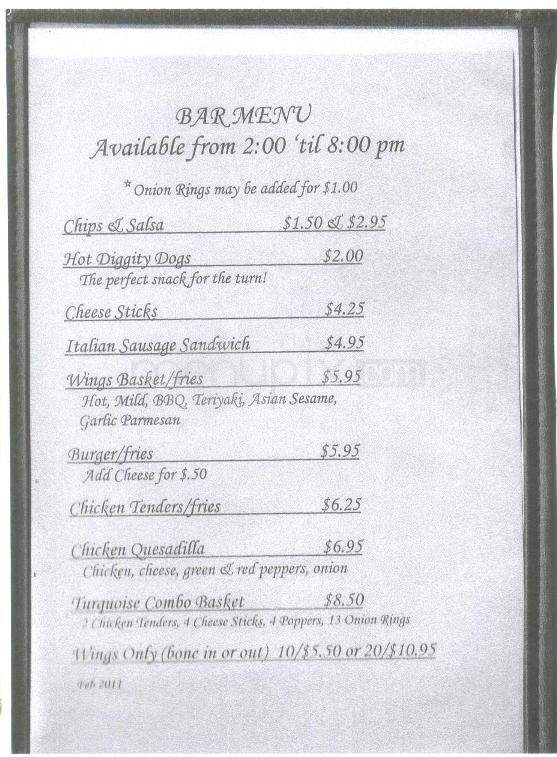 BAR MENU
Available from 2:00 'til 8:00 pm
* Onion Rings may be added for $1.00
Chips & Salsa $1.50 & $2.95
Hot Diggity Dogs $2.00
The perfect snack for the turn!
Cheese Sticks $4.25
Italian Sausage Sandwich $4.95
Wings Basket/fries $5.95
Hot, Mild, BBQ, Teriyaki, Asian Sesame,
Garlic Parmesan
Burger/fries $5.95
Add Cheese for $.50
Chicken Tenders/fries $6.25
Chicken Quesadilla $6.95
Chicken, cheese, green & red peppers, onion
Turquoise Combo Basket $8.50
2 Chicken Tenders, 4 Cheese Sticks, 4 Poppers, 13 Onion Rings
Wings Only (bone in or out) 10/$5.50 or 20/$10.95
Feb 2011